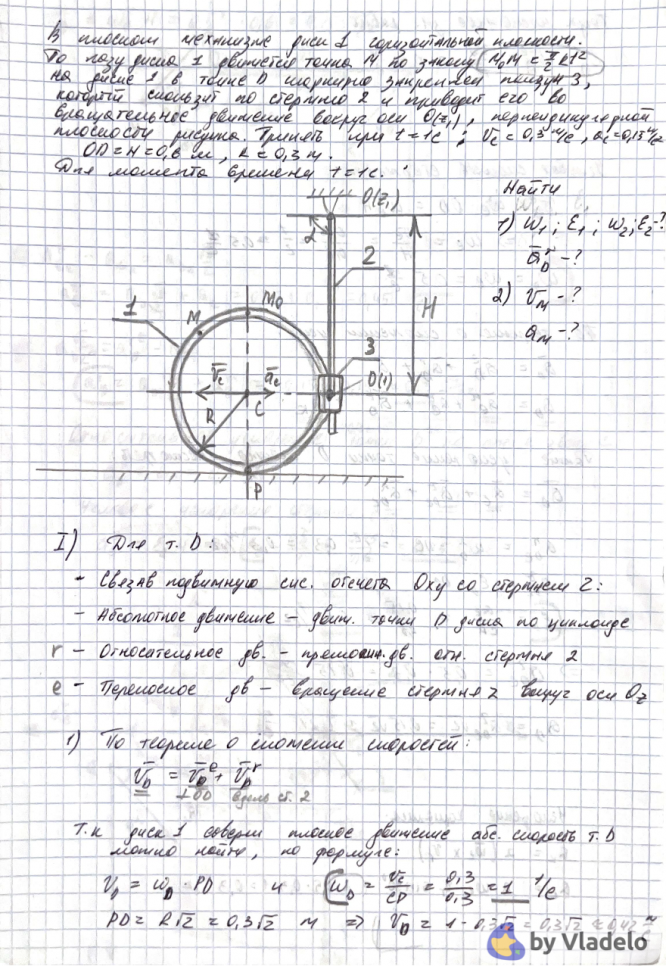 В плоском механизме диск 1 горизонтальной плоскости.
По пазу диска 1 движется точка M по закону M₀M = π/2 Rt²
на диске 1 в точке D шарнирно закреплен ползун 3,
который скользит по стержню 2 и приводит его во
вращательное движение вокруг оси O(z₁), перпендикулярной
плоскости рисунка. Принять при t=1с; Vc = 0,3 м/с, ac=0,13 м/с²
OD=H=0,6 м, R=0,3 м.
Для момента времени t=1с.
Найти
1) ω₁; ε₁; ω₂; ε₂-?
a̅ᴰʳ -?
2) Vм -?
aм -?
O(z₁)
2
2
H
1
M
M₀
3
V̅c
a̅c
D(1)
R
C
P
I) Для т. D:
- Связав подвижную сис. отсчета Oxy со стержнем 2:
- Абсолютное движение – движ. точки D диска по циклоиде
r - Относительное дв. - прямолин. дв. отн. стержня 2
e - Переносное дв – вращение стержня 2 вокруг оси Oz
1) По теореме о сложении скоростей:
V̅D = V̅Dᵉ + V̅Dʳ
⊥OD вдоль ст. 2
Т.к диск 1 соверш плоское движение абс. скорость т. D
можно найти, по формуле:
VD = ωD · PD и ωD = Vc/CP = 0,3/0,3 = 1 1/с
PD = R√2 = 0,3√2 м => VD = 1·0,3√2 = 0,3√2 ≈ 0,42 м/с
by Vladelo